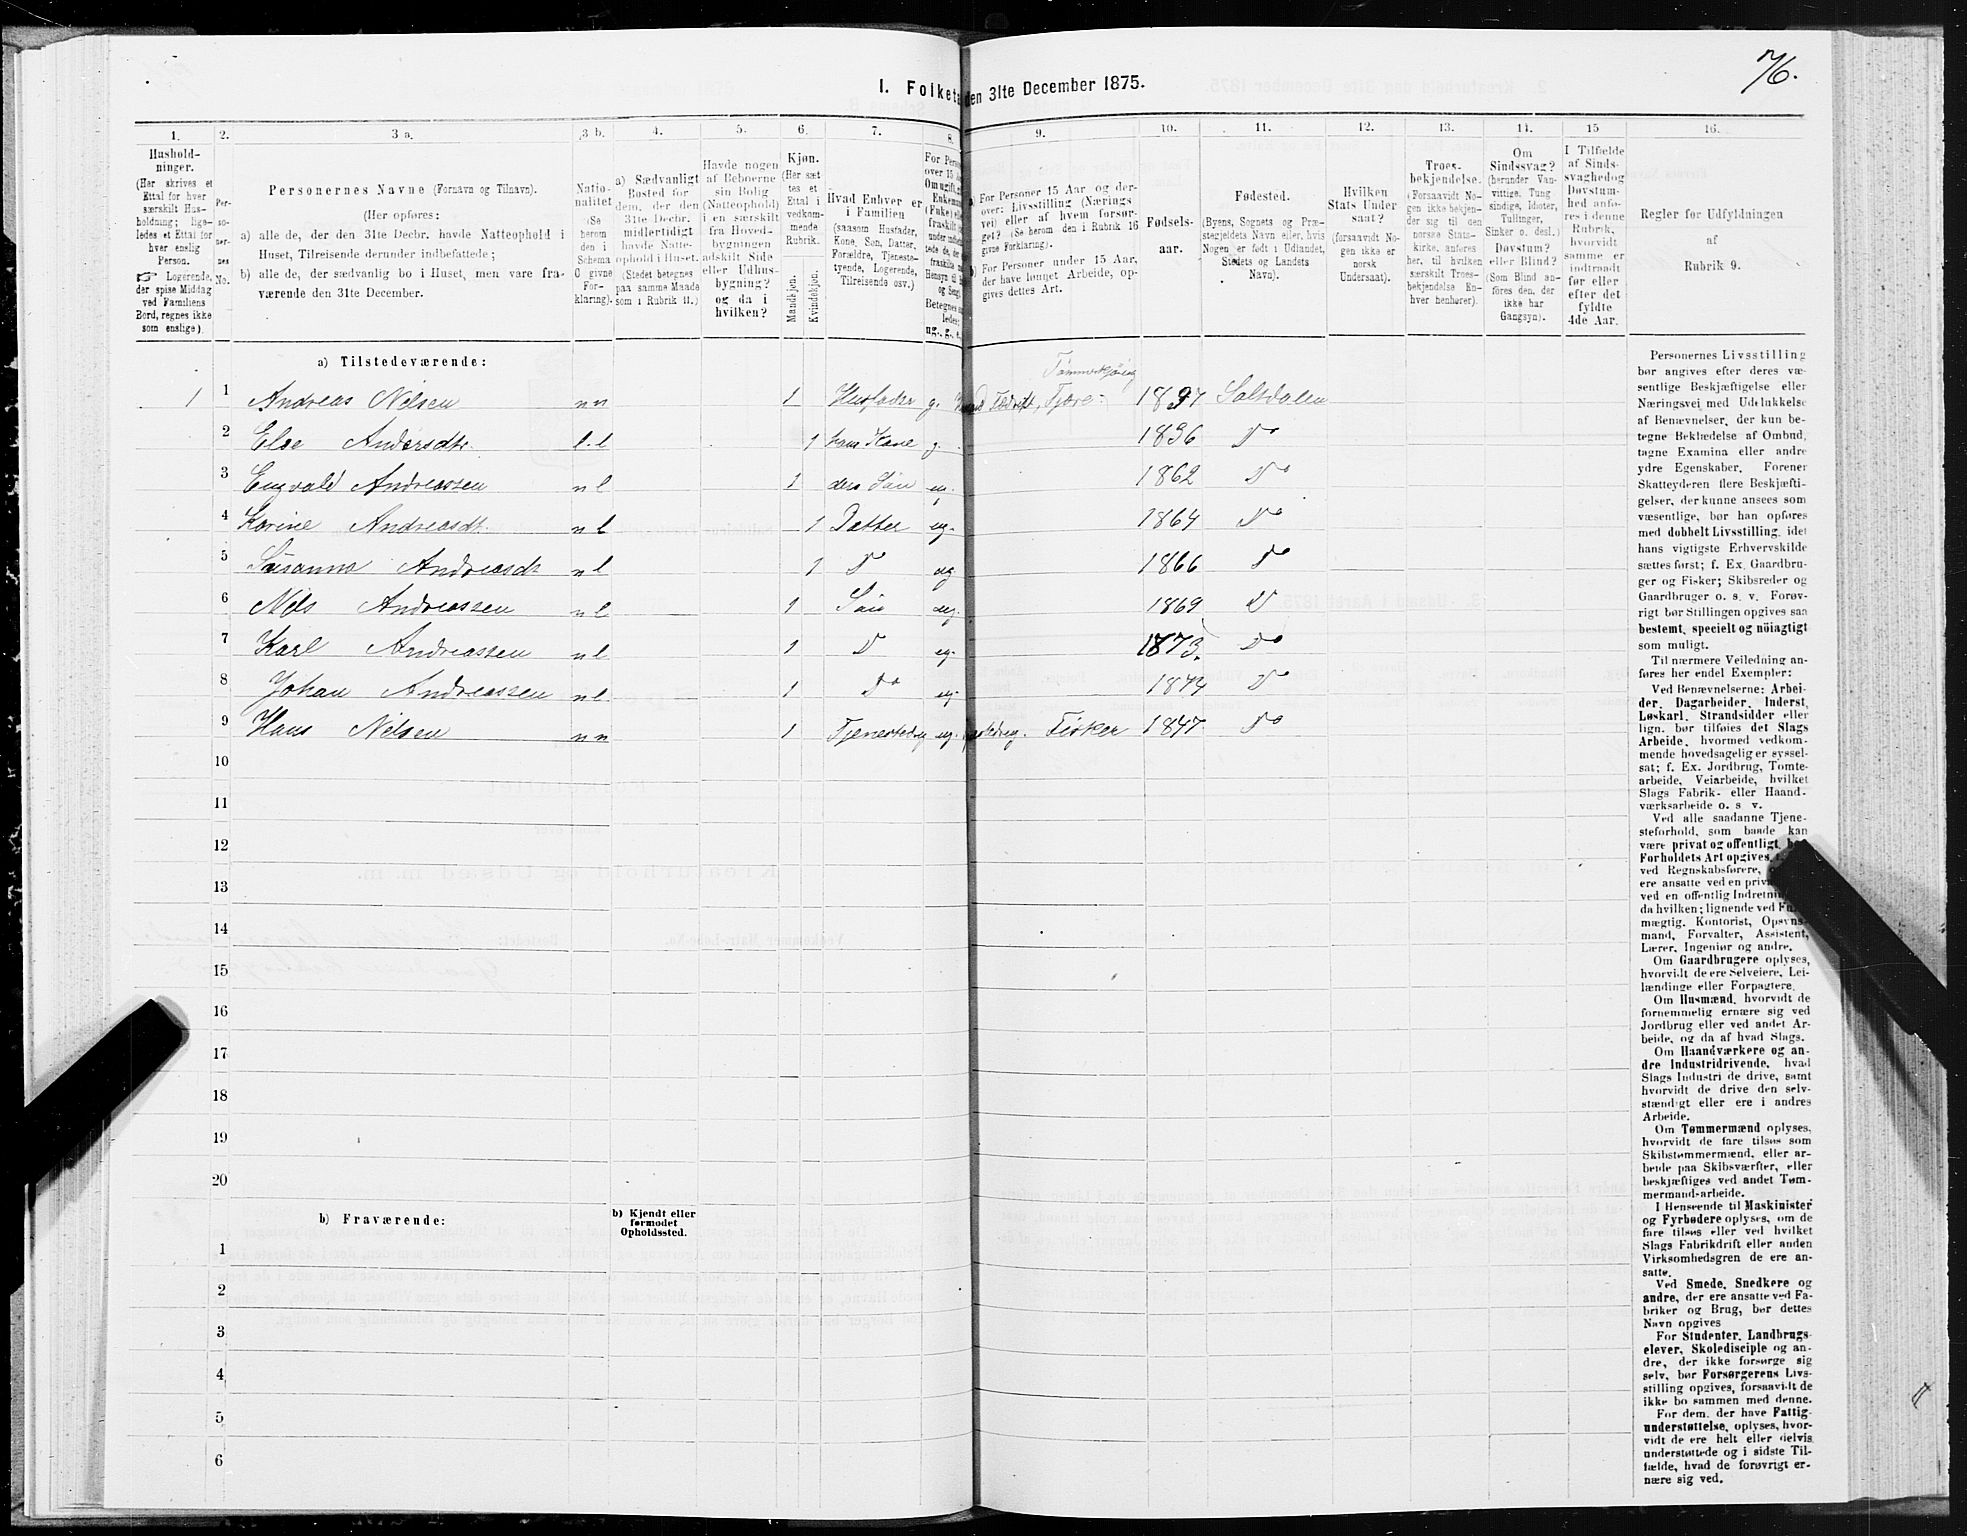 76.
I. Folketa den 31te December 1875.
1. 2. 3 a. 3 b. 4. 5. 6. 7. 8. 9. 10. 11. 12. 13. 14. 15 16.
Hushold-
ninger.
(Her skrives et
Ettal for hver
særskilt Hus-
holdning; lige-
ledes et Ettal for
hver enslig
Person.
☞ Logerende,
der spise Middag
ved Familiens
Bord, regnes ikke
som enslige).
Per-
so-
ner-
nes
No.
Personernes Navne (Fornavn og Tilnavn).
(Her opføres:
a) alle de, der den 31te Decbr. havde Natteophold i
Huset, Tilreisende derunder indbefattede;
b) alle de, der sædvanlig bo i Huset, men vare fra-
værende den 31te December.
Natio-
nalitet
(Se
herom
den i
Schema
O givne
For-
klaring).
a) Sædvanligt
Bosted for
dem, der den
31te Decbr.
midlertidigt
havde Natte-
ophold i Huset.
(Stedet betegnes
paa samme Maade
som i Rubrik 11.)
Havde nogen
af Beboerne
sin Bolig
(Natteophold)
i en særskilt
fra Hoved-
bygningen
adskilt Side
eller Udhus-
bygning?
og da i
hvilken?
Kjøn.
(Her sæt
tes et
Ettal i
vedkom-
mende
Rubrik.
Mandkjøn.
Kvindekjøn.
Hvad Enhver er
i Familien
(saasom Husfader,
Kone, Søn, Datter,
Forældre, Tjeneste-
tyende, Logerende,
Tilreisende osv.)
For Perso
over 15
Om ugift, g
Enkeman
(Fuke) el
fraskilt
ug., g., e.
a) For Personer 15 Aar og der-
over: Livsstilling (Nærings
vei) eller af hvem forsør-
get? (Se herom den i Rubrik 16
givne Forklaring).
b) For Personer under 15 Aar,
der have lønnet Arbeide, op-
gives dettes Art.
Fødsels-
aar.
Fødested.
(Byens, Sognets og Præ-
stegjeldets Navn eller, hvis
Nogen er født i Udlandet,
Stedets og Landets
Navn).
Hvilken
Stats Under
saat?
(forsaavidt No-
gen ikke er
norsk
Undersaat).
Troes-
bekjendelse.
(Forsaavidt No-
gen ikke bekjen-
der sig til den
norske Stats-
kirke, anføres
her, til hvilken
særskilt Troes-
bekjendelse En-
hver henhører).
Om
Sindssvag?
(herunder Van-
vittige, Tung
sindige, Idioter,
Tullinger,
Sinker o. desl.)
Døvstum?
eller Blind?
(Som Blind an-
føres den, der
ikke har
Gangsyn).
I Tilfælde
af Sinds-
svaghed og
Døvstum-
hed anfø-
res i denne
Rubrik,
hvorvidt
samme er
indtraadt
før eller
efter det
fyldte
4de Aar.
Regler for Udfyldningen
af
Rubrik 9.
a) Tilstedeværende:
1 1 Andreas Nilsen nn 1 Husfader g. 1837 Saltdalen
2 Else Andersdtr. l.l 1 hans Kone g 1836 Do
3 Engvald Andreassen nl 1 ders Søn ug. 1862 Do
4 Karine Andreasdt. nl 1 Datter ug. 1864 Do
5 Susanna Andreasdt nl 1 Do ug 1866 Do
6 Nils Andreassen nl 1 Søn ug. 1869 Do
7 Karl Andreassen nl 1 Do ug. 1873. Do
8 Johan Andreassen nl 1 Do ug. 1874 Do
9 Hans Nilsen nn 1 Tjenestedrg ug. Fisker 1847 Do
10
11
12
13
14
15
16
17
18
19
20
b) Fraværende:
b) Kjendt eller
formodet
Opholdssted.
1
2
3
4
5
6
Personernes Livsstilling
bør angives efter deres væ-
sentlige Beskjæftigelse eller
Næringsvei med Udelukkelse
af Benævnelser, der kun be-
tegne Beklædelse af Ombud,
tagne Examina eller andre
ydre Egenskaber. Forener
Skatteyderen flere Beskjæfti-
gelser, der kunne ansees som
væsentlige, bør han opføres
med dobbelt Livsstilling, idet
hans vigtigste Erhvervskilde
sættes først; f. Ex. Gaardbru-
ger og Fisker; Skibsreder og
Gaardbruger o. s. v. Forøv-
rigt bør Stillingen opgives saa
bestemt, specielt og nöiagtigt
som muligt.
Til nærmere Veiledning an-
føres her endel Exempler:
Ved Benævnelserne: Arbei-
der, Dagarbeider, Inderst,
Løskarl, Strandsidder eller
lign. bør tilføies det Slags
Arbeide, hvormed vedkom-
mende hovedsagelig er syssel-
sat; f. Ex. Jordbrug, Tomte-
arbeide, Veiarbeide, hvilket
Slags Fabrik- eller Haand-
værksarbeide o. s. v.
Ved alle saadanne Tjene-
steforhold, som baade kan
være privat og offentligt,
Forholdets Art opgives,
ved Regnskabsførere,
ere ansatte ved en priv
ved en offentlig Indretnin
da hvilken; lignende ved Fu
mægtig, Kontorist, Opsyns-
mand, Forvalter, Assistent,
Lærer, Ingeniør og andre.
Om Gaardbrugere oplyses,
hvorvidt de ere Selveiere, Lei-
lændinge eller Forpagtere.
Om Husmænd, hvorvidt de
fornemmelig ernære sig ved
Jordbrug eller ved andet Ar-
beide, og da af hvad Slags.
Om Haandværkere og an-
dre Industridrivende, hvad
Slags Industri de drive, samt
hvorvidt de drive den selv-
stændigt eller ere i andres
Arbeide.
Om Tømmermænd oplyses,
hvorvidt de fare tilsøs som
Skibstømmermænd, eller ar-
beide paa Skibsværfter, eller
beskjæftiges ved andet Tøm-
mermandsarbeide.
I Henseende til Maskinister
og Fyrbødere oplyses, om de
fare tilsøs eller ved hvilket
Slags Fabrikdrift eller anden
Virksomhedsgren de ere an-
satte.
Ved Smede, Snedkere og
andre, der ere ansatte ved Fa-
briker og Brug, bør dettes
Navn opgives
For Studenter, Landbrugs-
elever, Skoledisciple og an-
dre, der ikke forsørge sig
selv, bør Forsørgerens Livs-
stilling opgives, forsaavidt de
ikke bo sammen med denne.
For dem, der have Fattig-
understøttelse, oplyses, hvor-
vidt de ere helt eller delvis
understøttede og i sidste Til-
fælde, hvad de forøvrigt er-
nære sig ved.